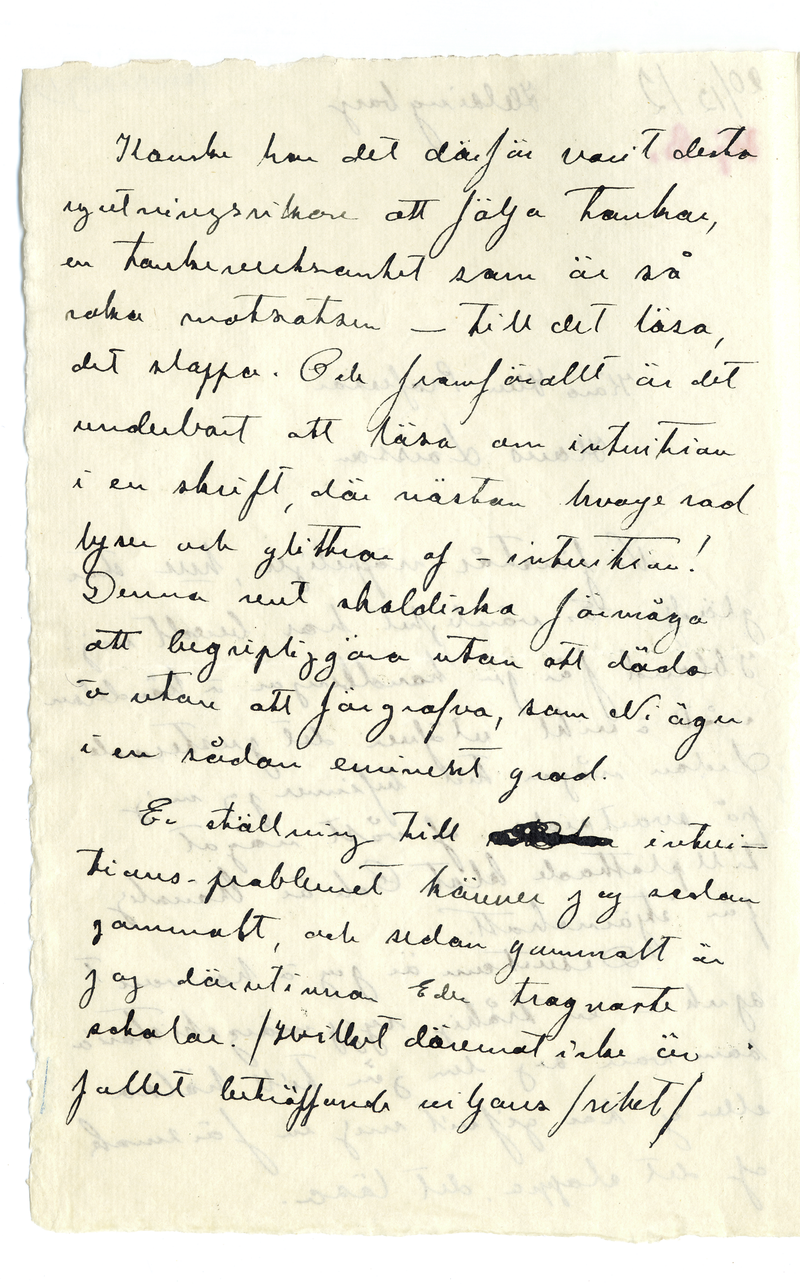 Kanske har det därför varit desto
njutningsrikare att följa tankar,
en tankeverksamhet som är så
raka motsatsen — till det lösa,
det slappa. Och framförallt är det
underbart att läsa om intuition
i en skrift, där nästan hvarje rad
lyser och glittrar af – intuition!
Denna rent skaldiska förmåga
att begripliggöra utan att döda
o utan att förgrofva, som Ni äger
i en sådan eminent grad.
Er ställning till intui-
tions-problemet känner jag sedan
gammalt, och sedan gammalt är
jag därutinnan Eder trognaste
skolar. /Hvilket däremot icke är
fallet beträffande viljans /rihet/